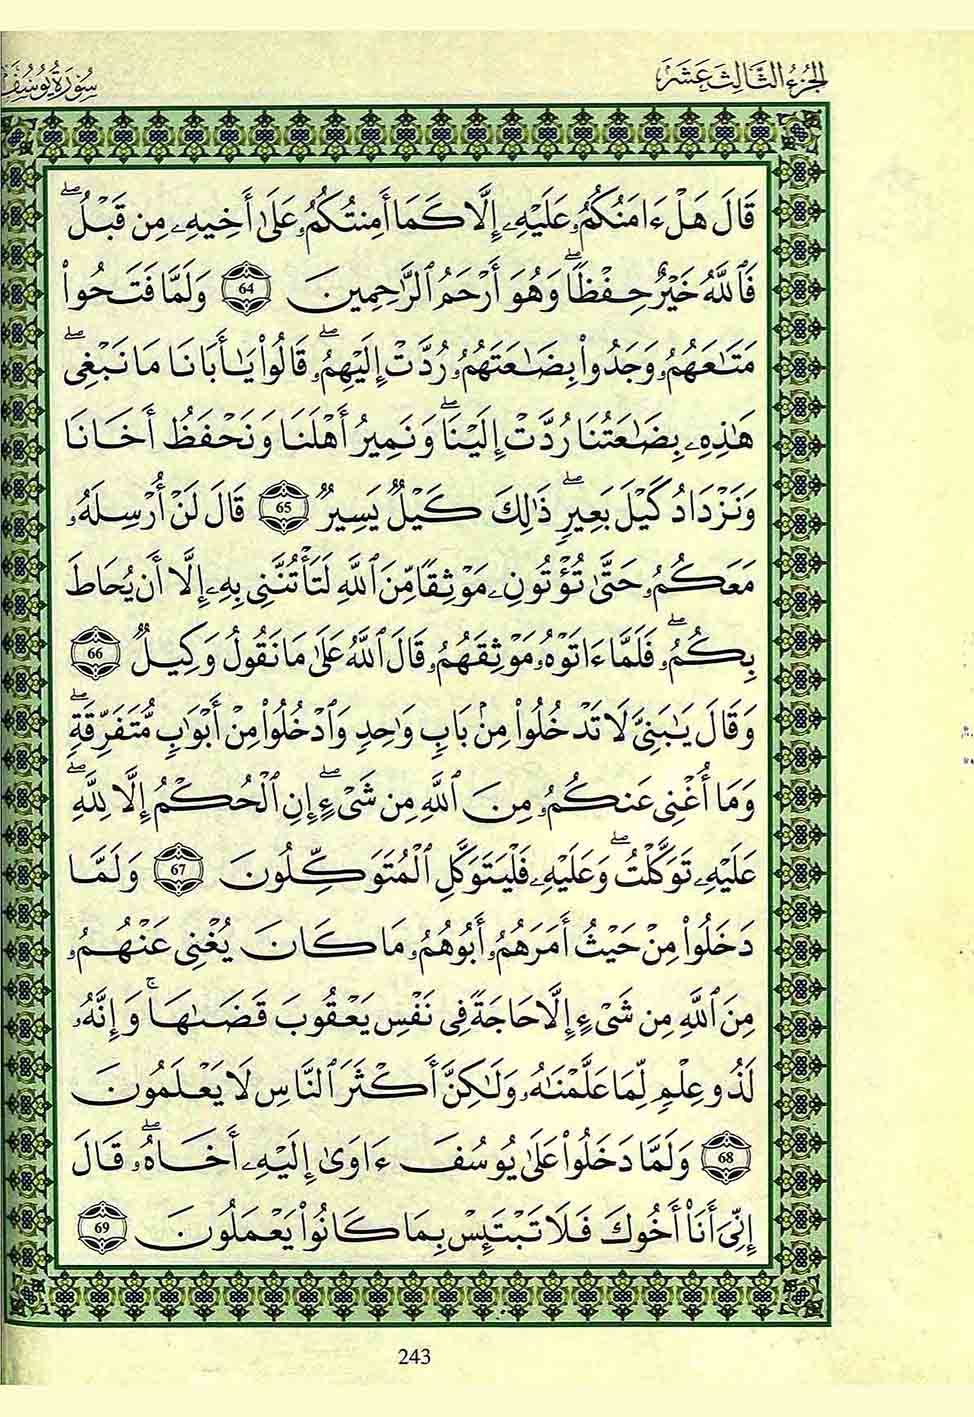 الجُزْءُ الثَّالِثَ عَشَرَ
سُورَةُ يُوسُفَ
قَالَ هَلْ ءَامَنُكُمُۥ عَلَيْهِۦ إِلَّا كَمَا أَمِنتُكُمُۥ عَلَىٰ أَخِيهِۦ مِن قَبْلُۖ
فَٱللَّهُ خَيْرٌ حِفْظًاۖ وَهُوَ أَرْحَمُ ٱلرَّٰحِمِينَ 64 وَلَمَّا فَتَحُواْ
مَتَٰعَهُمُۥ وَجَدُواْ بِضَٰعَتَهُمُۥ رُدَّتْ إِلَيْهِمُۥۖ قَالُواْ يَٰأَبَانَا مَا نَبْغِىۖ
هَٰذِهِۦ بِضَٰعَتُنَا رُدَّتْ إِلَيْنَاۖ وَنَمِيرُ أَهْلَنَا وَنَحْفَظُ أَخَانَا
وَنَزْدَادُ كَيْلَ بَعِيرٍۖ ذَٰلِكَ كَيْلٌ يَسِيرٌ 65 قَالَ لَنْ أُرْسِلَهُۥ
مَعَكُمُۥ حَتَّىٰ تُؤْتُونِۦ مَوْثِقًا مِّنَ ٱللَّهِ لَتَأْتُنَّنِى بِهِۦ إِلَّا أَن يُحَاطَ
بِكُمُۥۖ فَلَمَّا ءَاتَوْهُۥ مَوْثِقَهُمُۥ قَالَ ٱللَّهُ عَلَىٰ مَا نَقُولُ وَكِيلٌ 66
وَقَالَ يَٰبَنِىَّ لَا تَدْخُلُواْ مِنۢ بَابٍ وَٰحِدٍ وَٱدْخُلُواْ مِنْ أَبْوَٰبٍ مُّتَفَرِّقَةٍۖ
وَمَا أُغْنِى عَنكُمُۥ مِنَ ٱللَّهِ مِن شَىْءٍۖ إِنِ ٱلْحُكْمُ إِلَّا لِلَّهِۖ
عَلَيْهِۦ تَوَكَّلْتُۖ وَعَلَيْهِۦ فَلْيَتَوَكَّلِ ٱلْمُتَوَكِّلُونَ 67 وَلَمَّا
دَخَلُواْ مِنْ حَيْثُ أَمَرَهُمُۥ أَبُوهُمُۥ مَا كَانَ يُغْنِى عَنْهُمُۥ
مِنَ ٱللَّهِ مِن شَىْءٍ إِلَّا حَاجَةً فِى نَفْسِ يَعْقُوبَ قَضَىٰهَاۚ وَإِنَّهُۥ
لَذُو عِلْمٍ لِّمَا عَلَّمْنَٰهُۥ وَلَٰكِنَّ أَكْثَرَ ٱلنَّاسِ لَا يَعْلَمُونَ
68 وَلَمَّا دَخَلُواْ عَلَىٰ يُوسُفَ ءَاوَىٰ إِلَيْهِۦ أَخَاهُۥۖ قَالَ
إِنِّىَ أَنَا۠ أَخُوكَ فَلَا تَبْتَئِسْ بِمَا كَانُواْ يَعْمَلُونَ 69
243